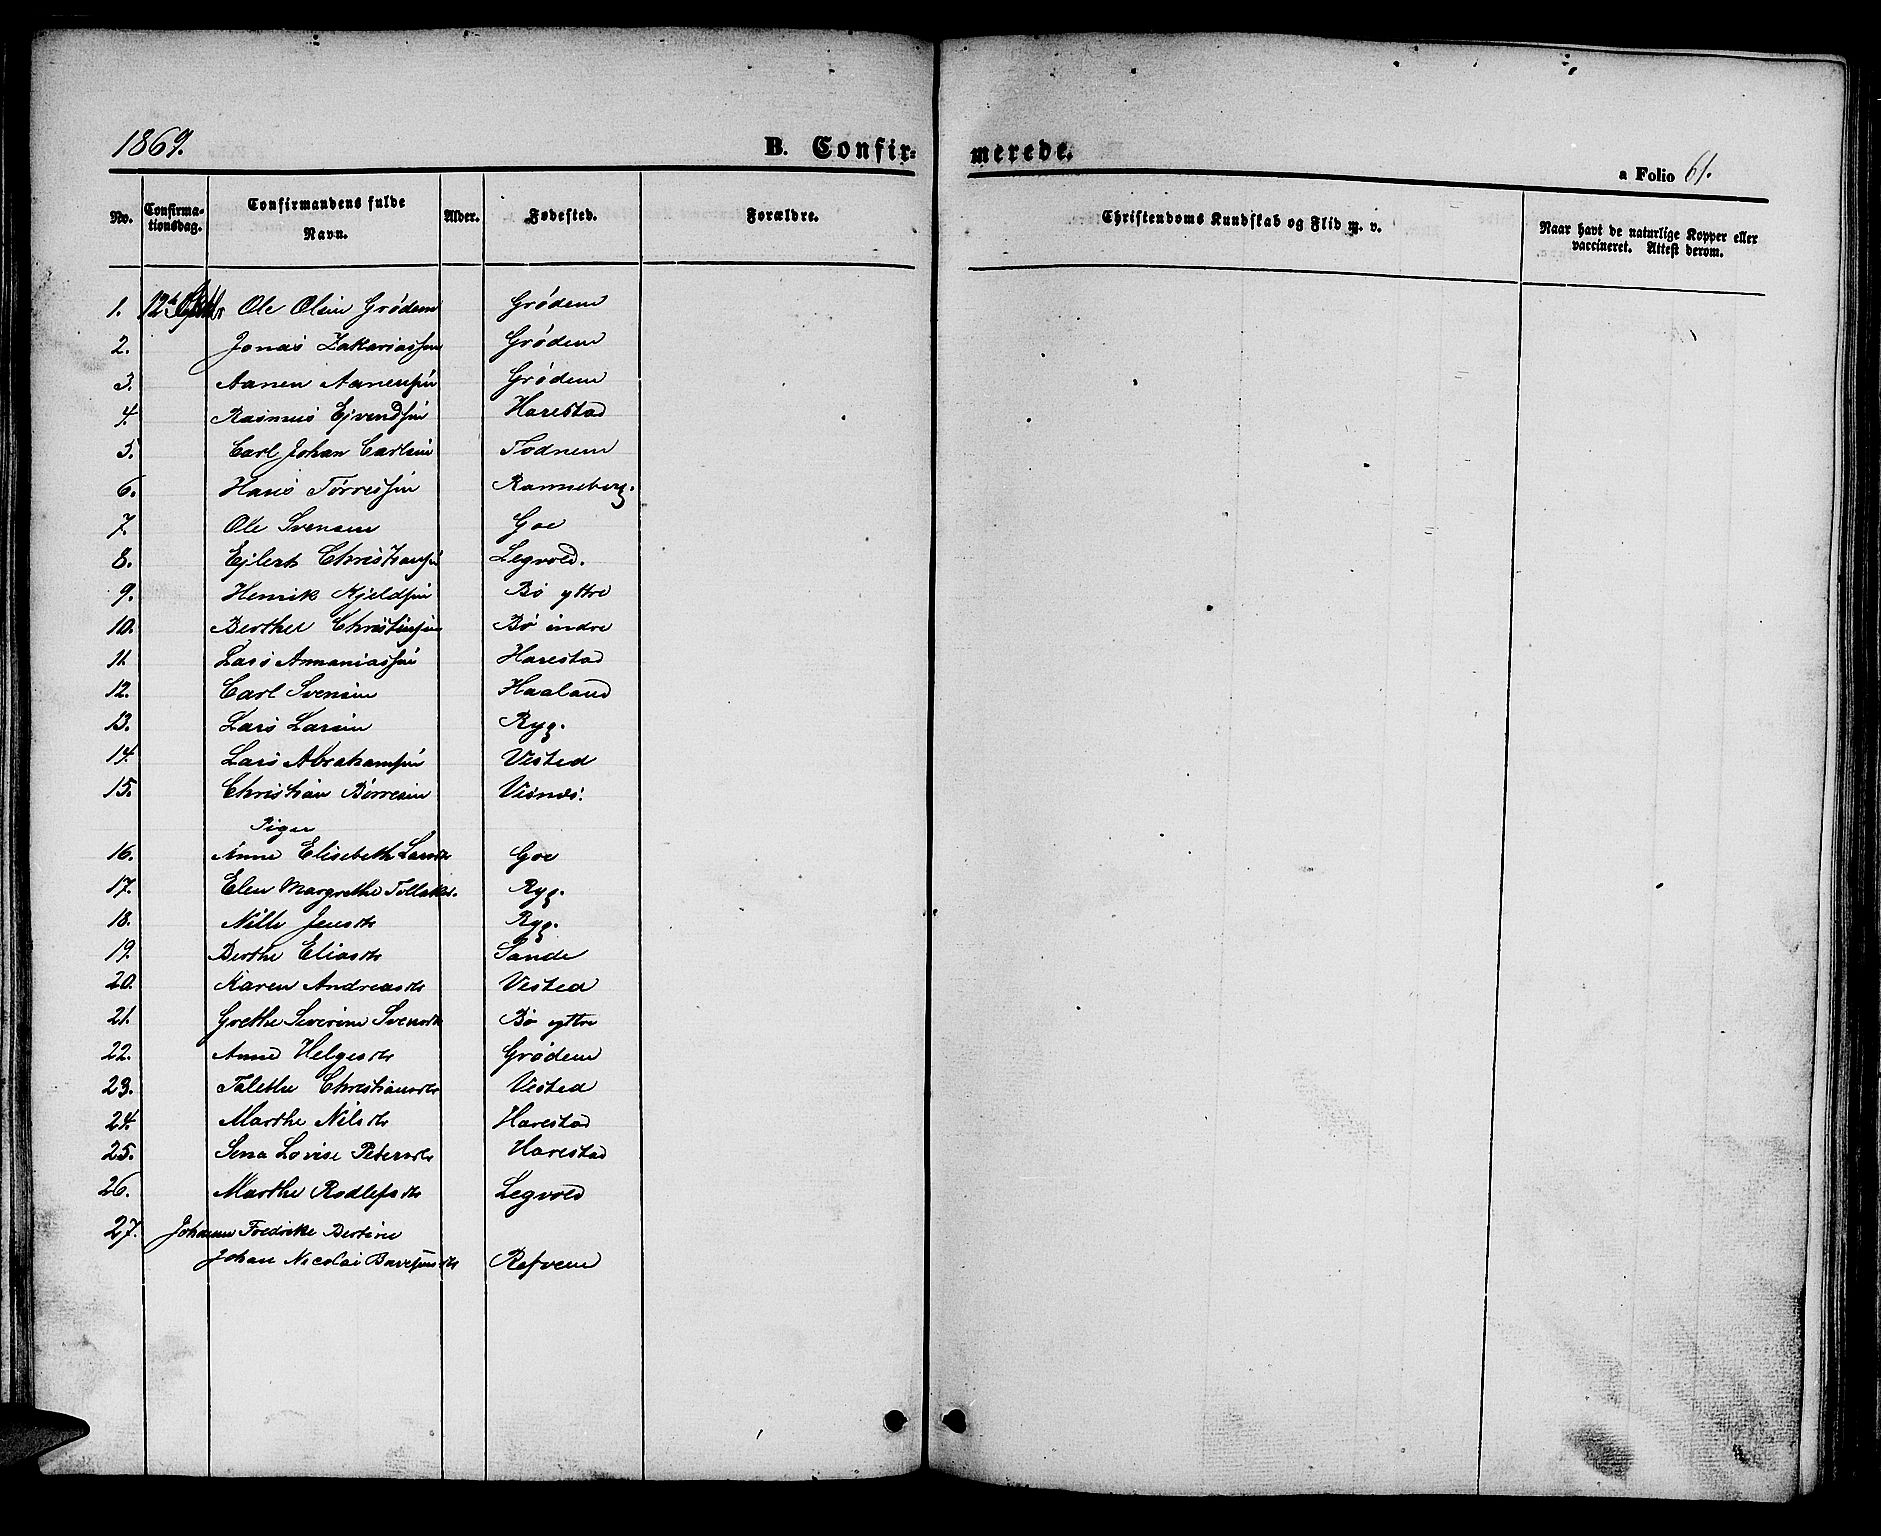 1869.
B. Confirmerede.
a Folio 61.
No. Confirmationsdag. Confirmandens fulde Navn. Alder. Fødested. Forældre. Christendoms Kundskab og Flid m. v. Naar havt de naturlige Kopper eller vaccineret. Attest derom.
1. 12te Ole Olsen Grødem Grødem
2. Jonas Zakariassen Grødem
3. Aanen Aanensen Grødem
4. Rasmus Ejvendsen Harestad
5. Carl Johan Carlsen Todnem
6. Hans Tørressen Ranneberg.
7. Ole Svensen Goe
8. Ejlert Christiansen Legvold.
9. Henrik Kjeldsen Bø yttre
10. Berthel Christensen Bø indre
11. Lars Annaniassen Harestad
12. Carl Svensen Haaland
13. Lars Larsen Ryg.
14. Lars Abrahamsen Visted
15. Christian Børresen Visnes.
Piger
16. Anne Elisebeth Larsdtr Goe
17. Elen Margrethe Tollaks. Ryg.
18. Nille Jensdtr Ryg.
19. Berthe Eliasdtr Sande
20. Karen Andreasdtr Visted
21. Grethe Severine Svensdtr Bø yttre
22. Anne Helgesdtr Grødem
23. Talethe Christiansdtr Visted
24. Marthe Nilsdtr Harestad
25. Sena Lovise Petersdtr Harestad
26. Marthe Rodlefsdtr Legvold
27. Johanne Fredrikke Bertine
Johan Nicolai Refvem